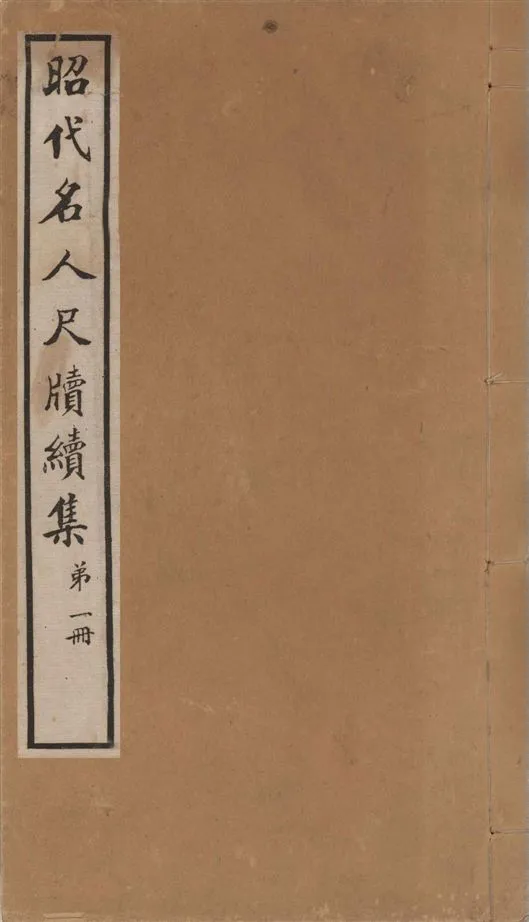 昭代名人尺牘續集
弟一冊